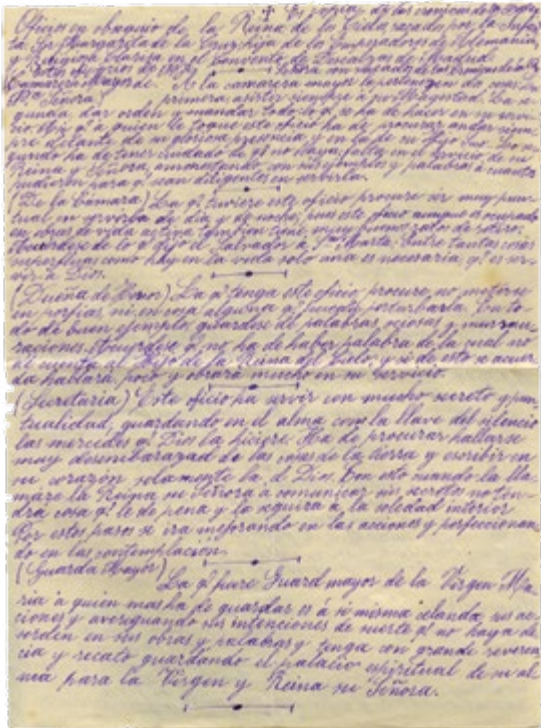 Es copia de las cronicas de
Oficios en obsequio de la Reina de los trazados por la Infan
ta Sor Margarita de la Cruz hija de los Emperadores de Alemania,
y Religiosa Clarisa en el convento de Descalzas de Madrid
Camarera Mayor de A la camarera mayor le pertenece en
(Ntra Señora) primera, asistir siempre a por Magestad. La se
gunda, dar orden y mandar todo lo q. se ha de hacer en su servi
cio. Así q. a quien le toque este oficio ha de procurar andar siem
pre delante de su gloriosa presencia y en la de su Hijo
gundo ha de tener cuidado de q. no haya falta en el servicio de mi
Reina y Señora, amonestando con sus ejemplos y palabras a cuantos
pudieren para q. sean diligentes en servirla.
(De la Cámara) La q. tuviere este oficio procure ser muy pun
tual, en de día y de noche; pues este oficio aunque es ocupado
en obras de vida activa tambien tiene muy buenos ratos de retiro.
Acuerdese de lo q. dijo el Salvador a Sta. Marta: Entre tantas cosas
superfluas como hay en la vida solo una es necesaria, q. es ser
vir a Dios.
(Dueña de Honor) La q. tenga este oficio procure no meterse
en porfias, ni en cosa alguna q. pueda perturbarla. En to
do de buen ejemplo, guardese de palabras ociosas y murmu
raciones. Acuerdese q. no ha de haber palabra de la cual no
de cuenta al Hijo de la Reina del Cielo, y si de esto se acuer
da hablará poco y obrará mucho en su servicio.
(Secretaria) Este oficio ha servir con mucho secreto y pun
tualidad, guardando en el alma con la llave del silencio
las mercedes q. Dios la hiciere. Ha de procurar hallarse
muy desembarazada de las cosas de la tierra y escribir en
su corazón solamente la de Dios. Con esto cuando la lla
mare la Reina mi Señora a comunicar sus secretos no ten
drá cosa q. le de pena y la seguira a la soledad interior
Por estos pasos se ira mejorando en las acciones y perfeccionan
do en las contemplación.
(Guarda Mayor)
La q. fuere Guard mayor de la Virgen Ma
ria a quien mas ha de guardar es a si misma celando sus ac
ciones y averiguando sus intenciones de suerte q. no haya de
sorden en sus obras y palabras y tenga con grande reveren
cia y recato guardando el palacio espiritual de su al
ma para la Virgen y Reina su Señora.